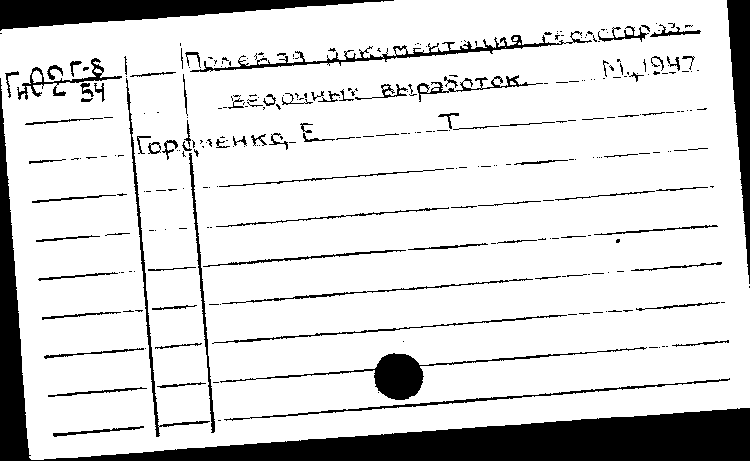 Полевая документация геологораз-
Г-8
54
ведочных выработок. М., 1947
Гордиенко, Е Т